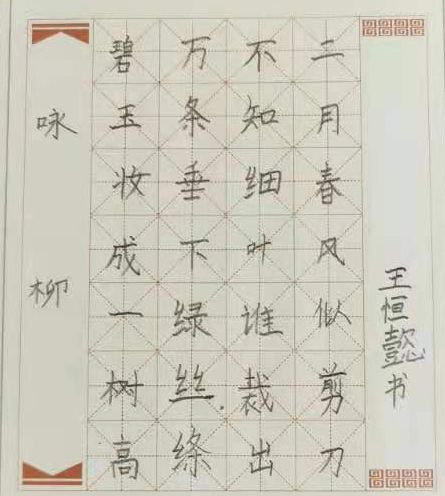 咏柳
碧玉妆成一树高
万条垂下绿丝绦
不知细叶谁裁出
二月春风似剪刀
王恒懿书